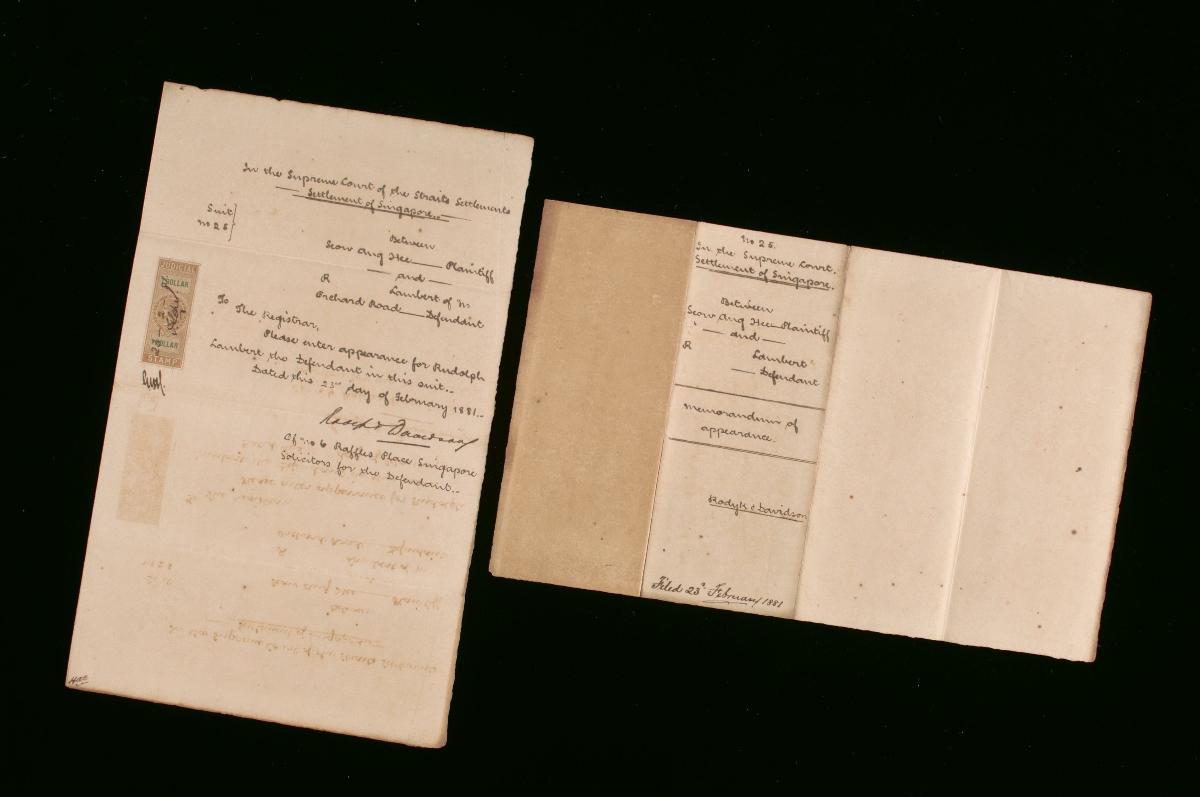 In the Supreme Court of the Straits Settlements
Settlement of Singapore.
Suit
No 25
Between
Seow Ang Hee Plaintiff
and
R Lambert of
Orchard Road Defendant
To The Registrar,
Please enter appearance for Rudolph
Lambert the Defendant in this suit.
Dated this 23rd day of February 1881.
Rodyk & Davidson
Of no 6 Raffles Place Singapore
Solicitors for the Defendant.
JUDICIAL
DOLLAR
DOLLAR
STAMP
No 25.
In the Supreme Court.
Settlement of Singapore.
Between
Seow Ang Hee Plaintiff
and
R Lambert
Defendant
Memorandum of
appearance.
Rodyk & Davidson
Filed 23d February 1881